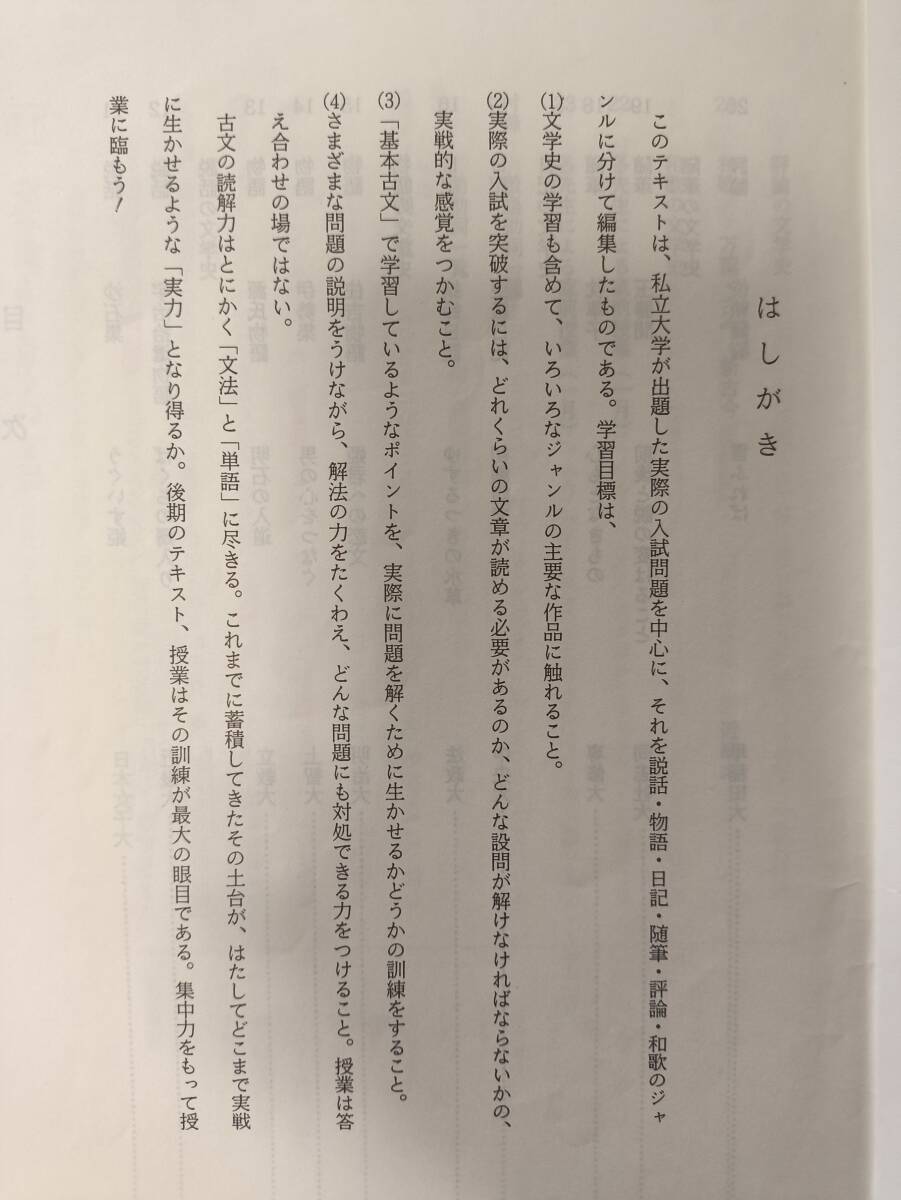 はしがき
このテキストは、私立大学が出題した実際の入試問題を中心に、それを説話・物語・日記・随筆・評論・和歌のジャ
ンルに分けて編集したものである。学習目標は、
(1)文学史の学習も含めて、いろいろなジャンルの主要な作品に触れること。
(2)実際の入試を突破するには、どれくらいの文章が読める必要があるのか、どんな設問が解けなければならないかの、
実戦的な感覚をつかむこと。
(3)「基本古文」で学習しているようなポイントを、実際に問題を解くために生かせるかどうかの訓練をすること。
(4)さまざまな問題の説明をうけながら、解法の力をたくわえ、どんな問題にも対処できる力をつけること。授業は答
え合わせの場ではない。
古文の読解力はとにかく「文法」と「単語」に尽きる。これまでに蓄積してきたその土台が、はたしてどこまで実戦
に生かせるような「実力」となり得るか。後期のテキスト、授業はその訓練が最大の眼目である。集中力をもって授
業に臨もう!